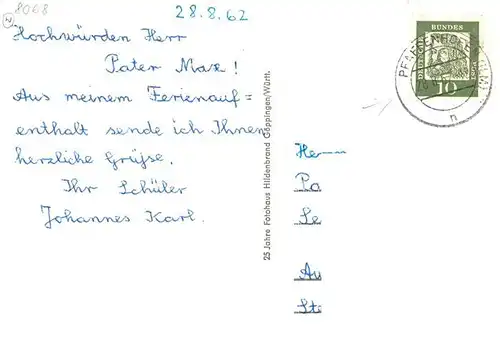 8068
28.8.62
Hochwürden Herr
Pater Max!
Aus meinem Ferienauf=
enthalt sende ich Ihnen
herzliche Grüße.
Ihr Schüler
Johannes Karl.
25 Jahre Fotohaus Hildenbrand Göppingen/Württ.
BUNDES
10
n
Herrn
Pa
Se
Au
St